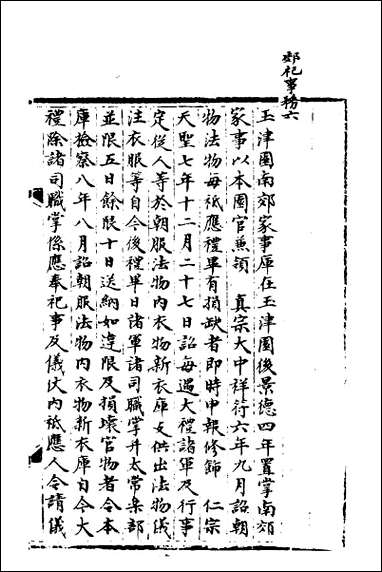 郊祀事務六
玉津園南郊家事庫在玉津園後景德四年置掌南郊
家事以本園官兼領　真宗大中祥符六年九月詔朝
物法物每祗應禮畢有損缺者即時申報修飾　仁宗
天聖七年十二月二十七日詔每遇大禮諸軍及行事
定從人等於朝服法物内衣物新衣庫支供出法物儀
注衣服等自今後禮畢日諸軍諸司職掌并太常樂部
並限五日餘限十日送納如違限及損壞官物者令本
庫檢察八年八月詔朝服法物内衣物新衣庫自今大
禮除諸司職掌係應奉祀事及儀仗内祗應人令請儀